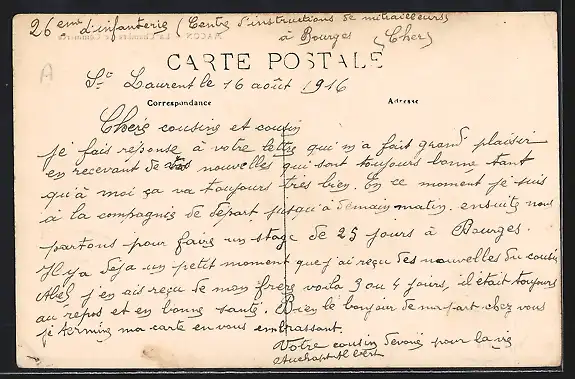 26eme d'infanterie (Centre d'instructions de mitrailleurs
à Bourges (Cher)
MACON La Chambre de Commerce
CARTE POSTALE
St Laurent le 16 août 1916
Correspondance
Adresse
Chers cousine et cousin
je fais reponse à votre lettre qui m'a fait grand plaisir
en recevant de vos nouvelles qui sont toujours bonne tant
qu'à moi ça va toujours très bien. En ce moment je suis
à la compagnie de départ jusqu'à demain matin. ensuite nous
partons pour faire un stage de 25 jours à Bourges.
Il y a deja un petit moment que j'ai reçu des nouvelles du cousin
Abel j'en ais reçu de mon frere voila 3 ou 4 jours, il était toujours
au repos et en bonne santé. Bien le bonjour de ma part chez vous
je termine ma carte en vous embrassant.
Votre cousin devoué pour la vie